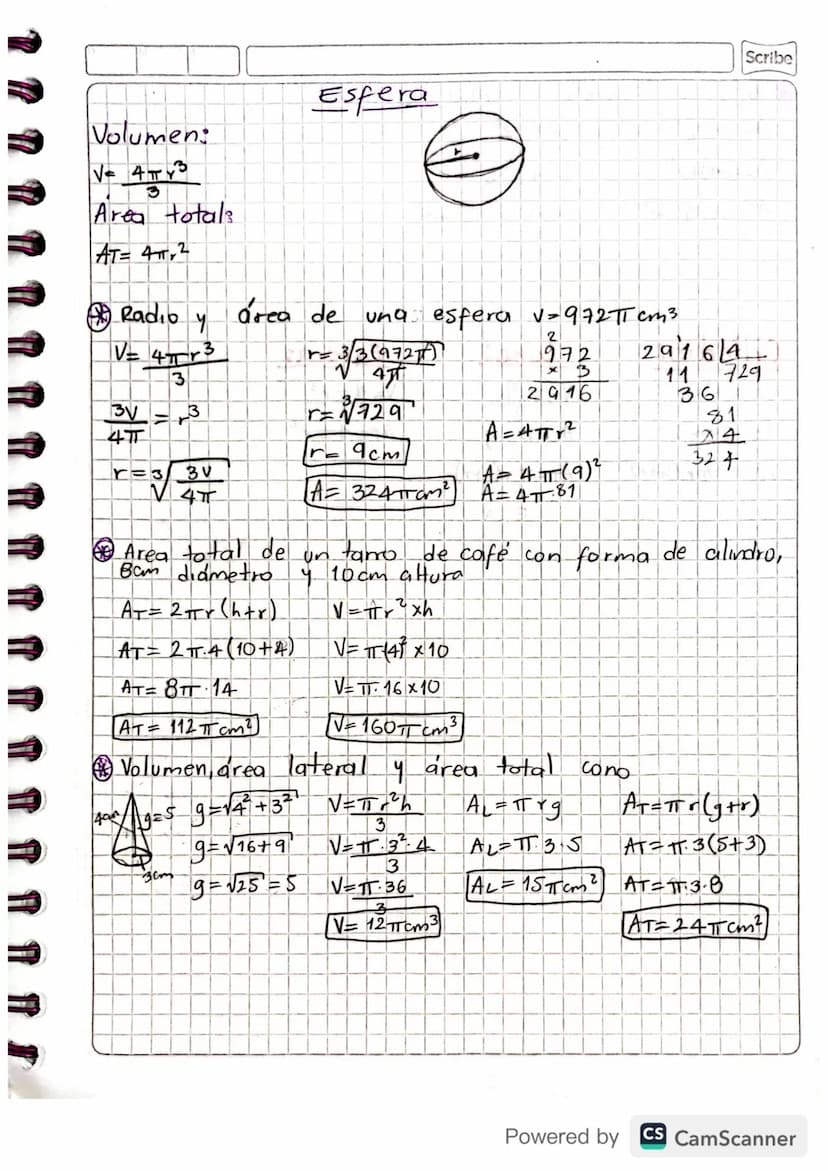 Scribe
Esfera
Volumen:
V= 4πr³/3
Área total:
AT= 4πr²
r
* Radio y área de una esfera V=972π cm³
V= 4πr³/3
3V/4π = r³
r=³√(3V/4π)
r=³√(3(972π)/4π)
r=³√729
r= 9cm
A= 324πcm²
2
972
× 3
2916
A=4πr²
A= 4π(9)²
A= 4π·81
2916 |4
11 729
36
81
×4
324
* Area total de un tarro de café con forma de cilindro,
8cm diámetro y 10cm altura
AT= 2πr(h+r)
AT= 2π·4(10+4)
AT= 8π·14
AT= 112πcm²
V=πr²xh
V= π(4)² x10
V=π·16x10
V=160πcm³
* Volumen, área lateral y área total cono
4cm
g=5
3cm
g=√4²+3²
g=√16+9
g=√25=5
V=πr²h/3
V=π·3²·4/3
V=π·36/3
V= 12πcm³
AL=πrg
AL=π·3·5
AL=15πcm²
AT=πr(g+r)
AT=π·3(5+3)
AT=π·3·8
AT=24πcm²
Powered by CS CamScanner